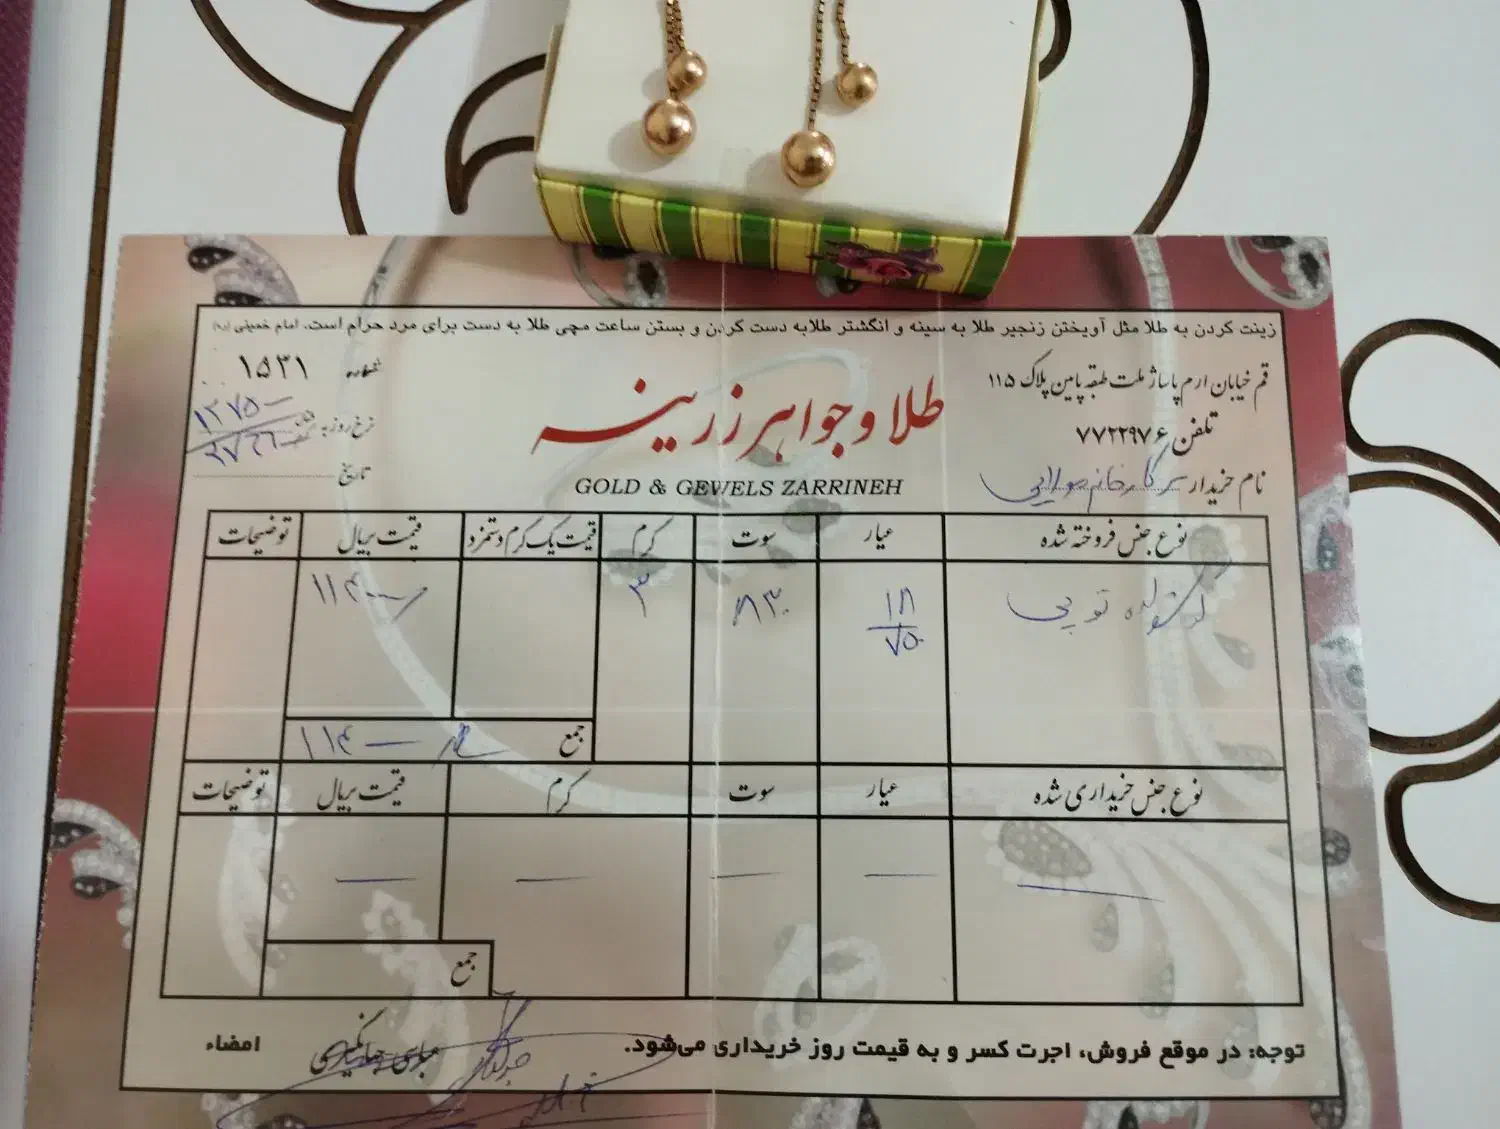 زینت کردن به طلا مثل آویختن زنجیر طلا به سینه و انگشتر طلابه دست کردن و بستن ساعت مچی طلا به دست برای مرد حرام است. امام خمینی (ره)
قم خیابان ارم پاساژ ملت طبقه پایین پلاک ۱۱۵
تلفن ۷۷۲۲۹۷۶
نام خریدار سرکار خانم مولایی
طلا و جواهر زرینه
GOLD & GEWELS ZARRINEH
شماره ۱۵۳۱
نرخ روز به
تاریخ
نوع جنس فروخته شده عیار سوت گرم قیمت یک گرم و دستمزد قیمت بریال توضیحات
گوشواره توپی ۱۸ ۸۳۰ ۳ ۱۱۴
۷۵۰
جمع ۱۱۴
نوع جنس خریداری شده عیار سوت گرم قیمت بریال توضیحات
جمع
توجه: در موقع فروش، اجرت کسر و به قیمت روز خریداری می‌شود.
امضاء